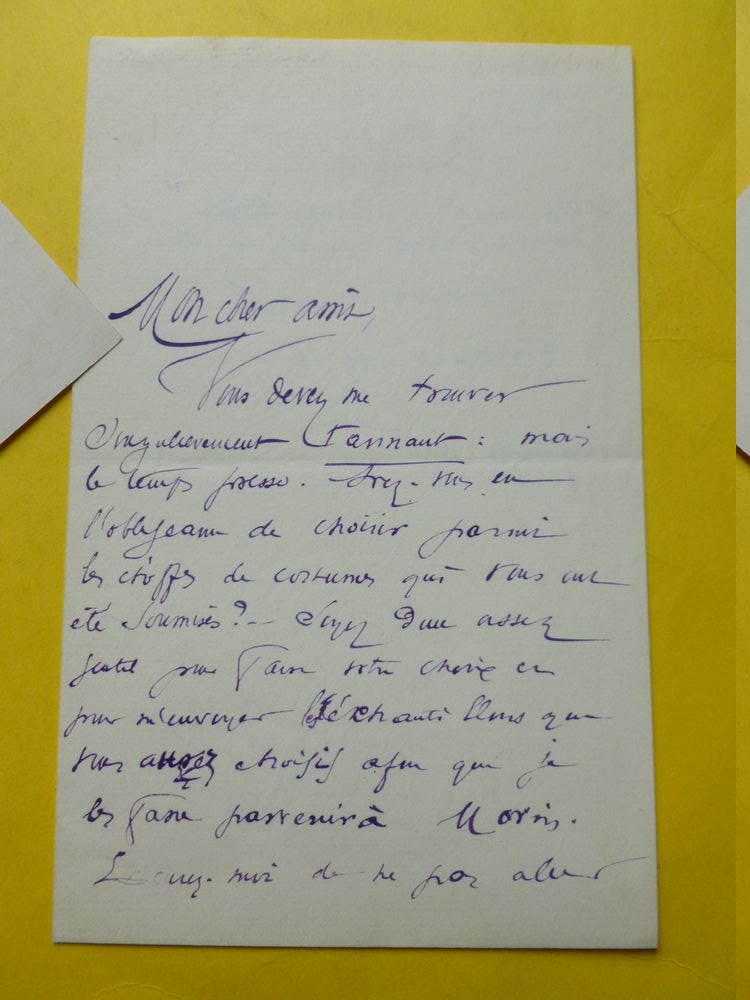 Mon cher ami,
Vous devez me trouver
singulièrement tannant : mais
le temps presse. Avez-vous eu
l'obligeance de choisir parmi
les étoffes de costumes qui vous ont
été soumises ? -- Soyez donc assez
gentil pour faire votre choix et
pour m'envoyer les échantillons que
vous aurez choisis afin que je
les fasse parvenir à Morin.
Excusez-moi de ne pas aller